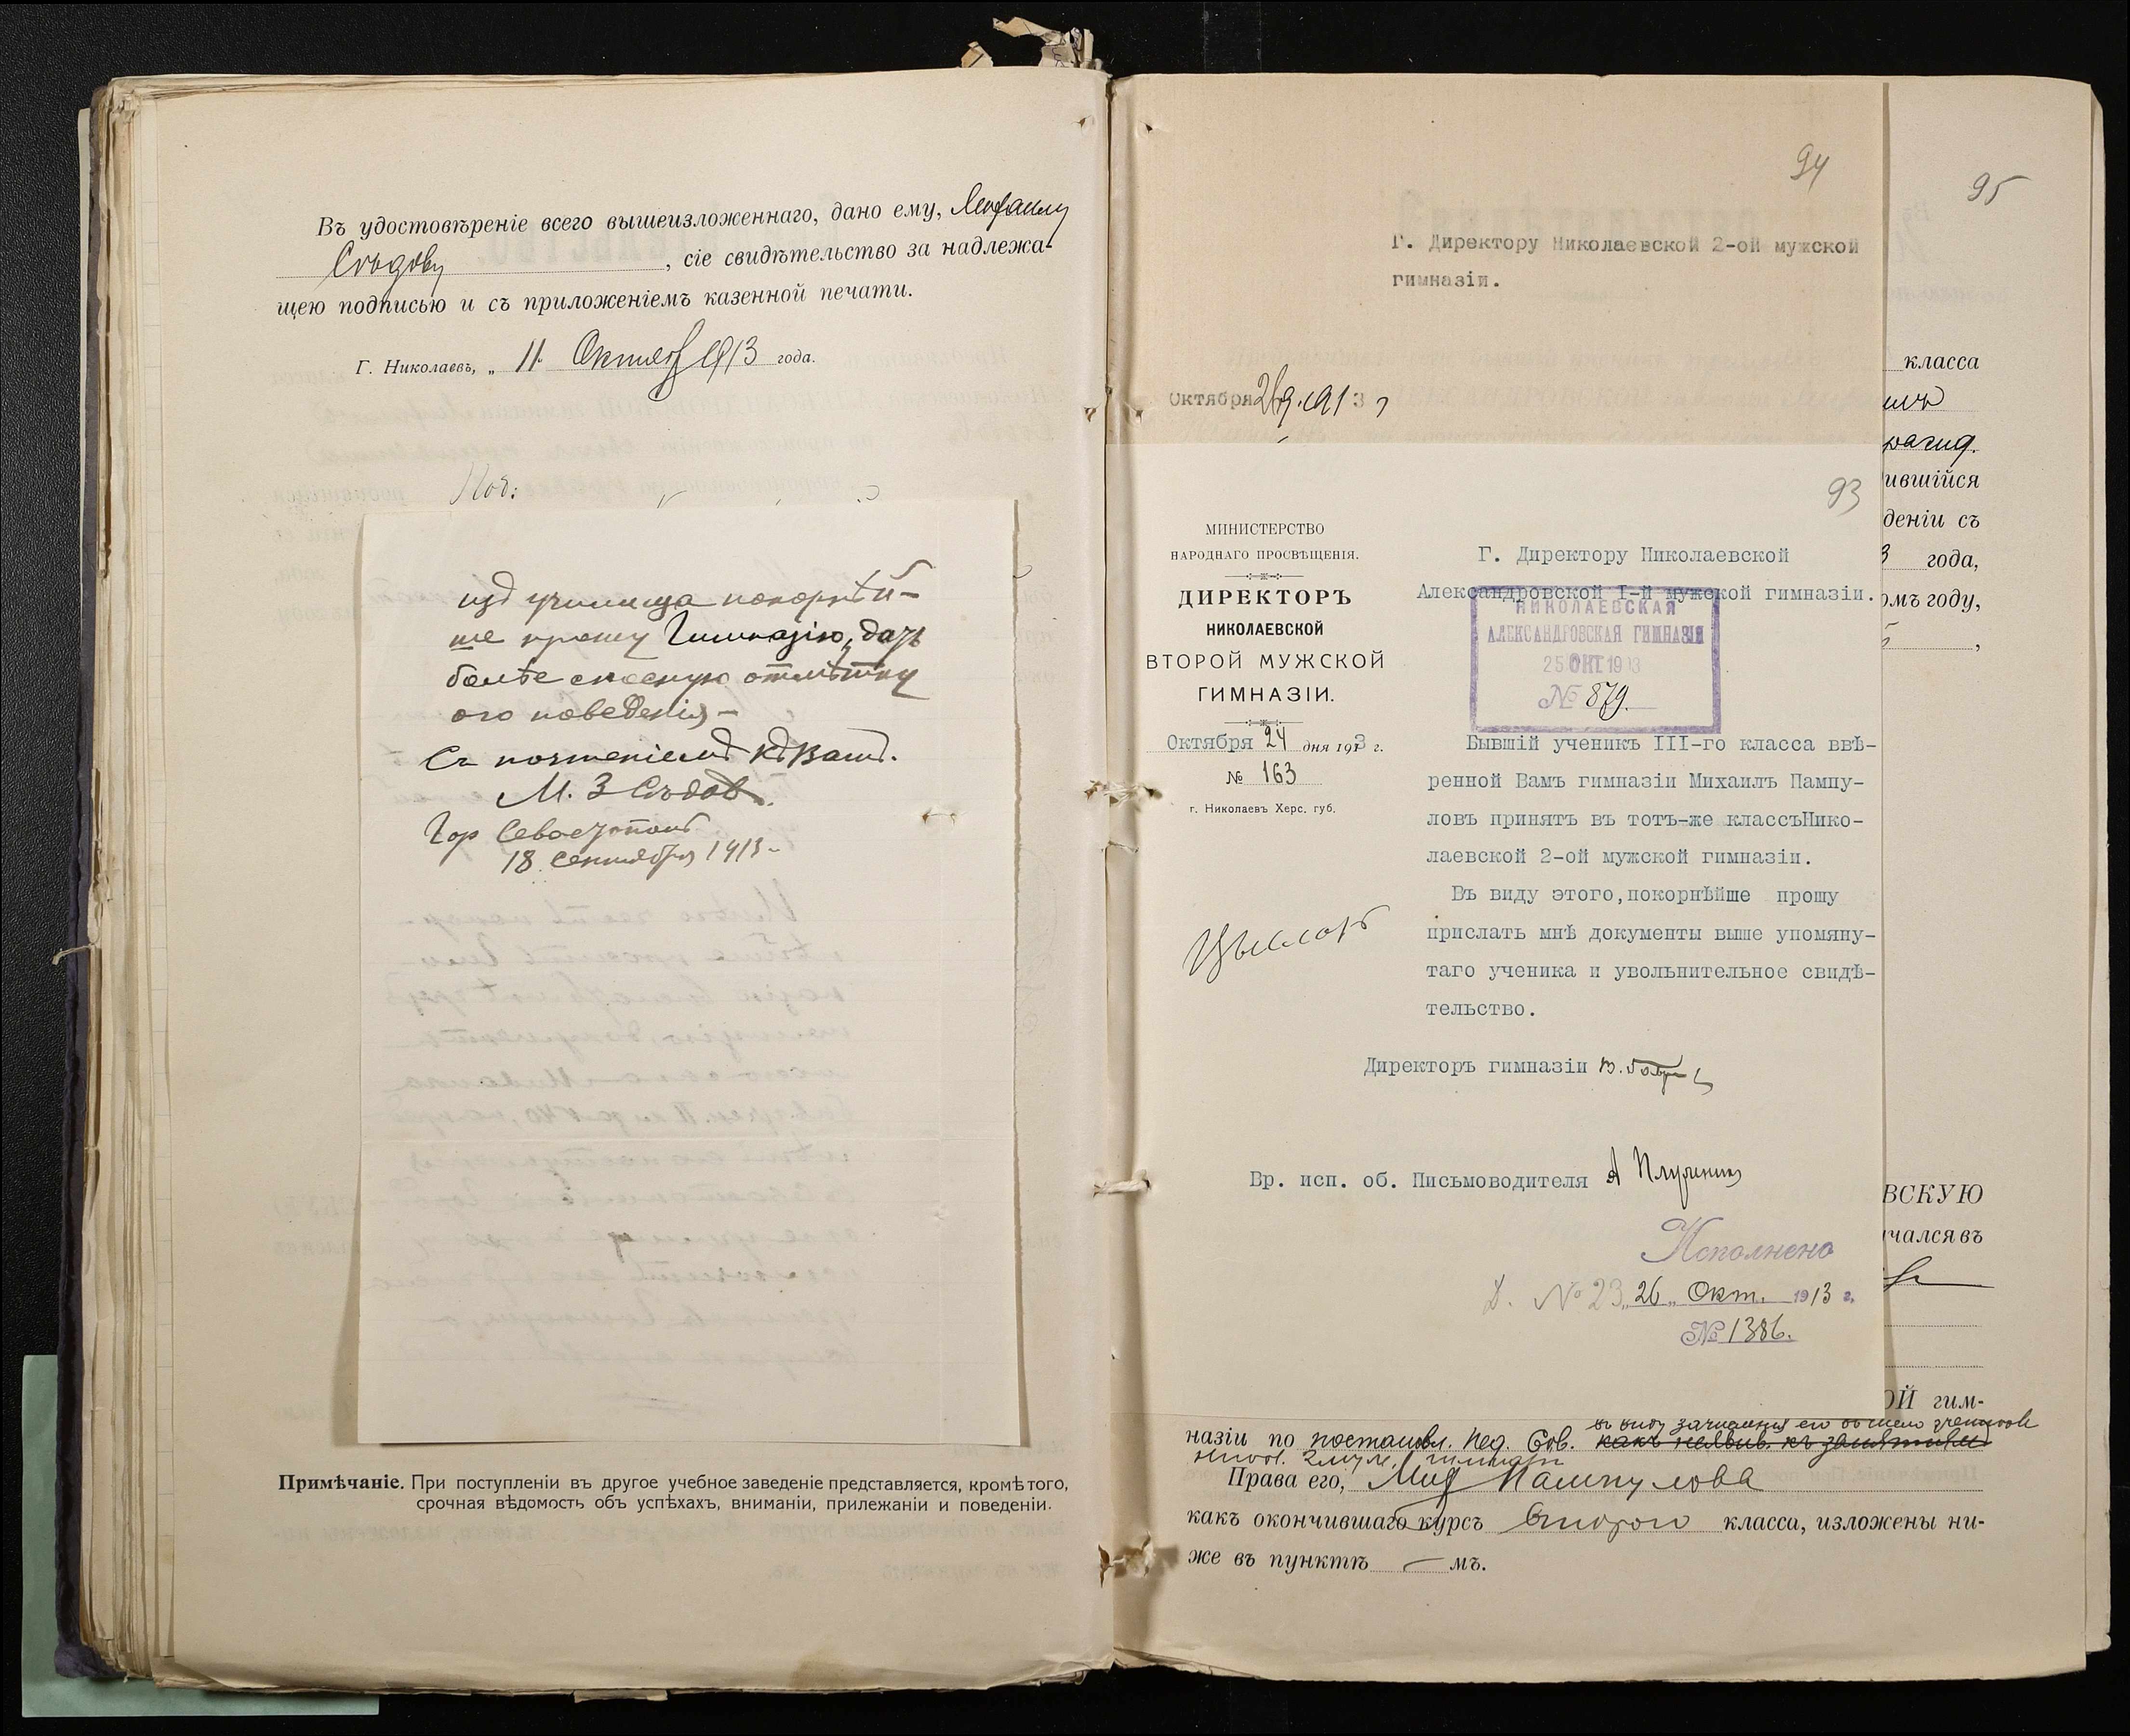 Въ удостовѣреніе всего вышеизложеннаго, дано ему,
Сѣдову, сіе свидѣтельство за надлежа-
щею подписью и съ приложеніемъ казенной печати.
Г. Николаевъ, „ 11 Октября 1913 года.
изъ училища покорнѣй-
ше прошу Гимназію, дать
болѣе сносную отмѣтку
его поведенія –
Съ почтеніемъ къ Вамъ.
М. З Сѣдовъ.
Гор Севастополь
18 Сентября 1913 –
Примѣчаніе. При поступленіи въ другое учебное заведеніе представляется, кромѣ того,
срочная вѣдомость объ успѣхахъ, вниманіи, прилежаніи и поведеніи.
94
Г. Директору Николаевской 2-ой мужской
гимназіи.
Октября 1913
93
МИНИСТЕРСТВО
НАРОДНАГО ПРОСВѢЩЕНІЯ.
ДИРЕКТОРЪ
НИКОЛАЕВСКОЙ
ВТОРОЙ МУЖСКОЙ
ГИМНАЗІИ.
Октября 24 дня 1913 г.
№ 163
г. Николаевъ Херс. губ.
Г. Директору Николаевской
Александровской I-й мужской гимназіи.
НИКОЛАЕВСКАЯ
АЛЕКСАНДРОВСКАЯ ГИМНАЗІЯ
25 ОКТ 1913
№ 879.
Бывшій ученикъ III-го класса ввѣ-
ренной Вамъ гимназіи Михаилъ Пампу-
ловъ принятъ въ тотъ-же классъНико-
лаевской 2-ой мужской гимназіи.
Въ виду этого,покорнѣйше прошу
прислать мнѣ документы выше упомяну-
таго ученика и увольнительное свидѣ-
тельство.
Директоръ гимназіи
Вр. исп. об. Письмоводителя
Исполнено
Д. № 23 „26„ Окт. 1913 г.
№ 1386.
95
класса
ившійся
деніи съ
3 года,
омъ году,
ВСКУЮ
чался въ
ОЙ гим-
въ виду зачисленія его въ число учениковъ
назіи по постановл. Пед. Сов. какъ неявив. къ занятіямъ
Права его, Мих Пампулова
какъ окончившаго курсъ второго класса, изложены ни-
же въ пунктѣ — мъ.